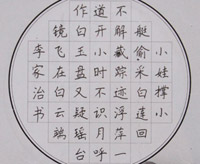 小娃撑小
艇偷采白莲回
不解藏踪迹浮萍一
道开小时不识月呼
作白玉盘又疑瑶台
镜飞在白云端
李家治书